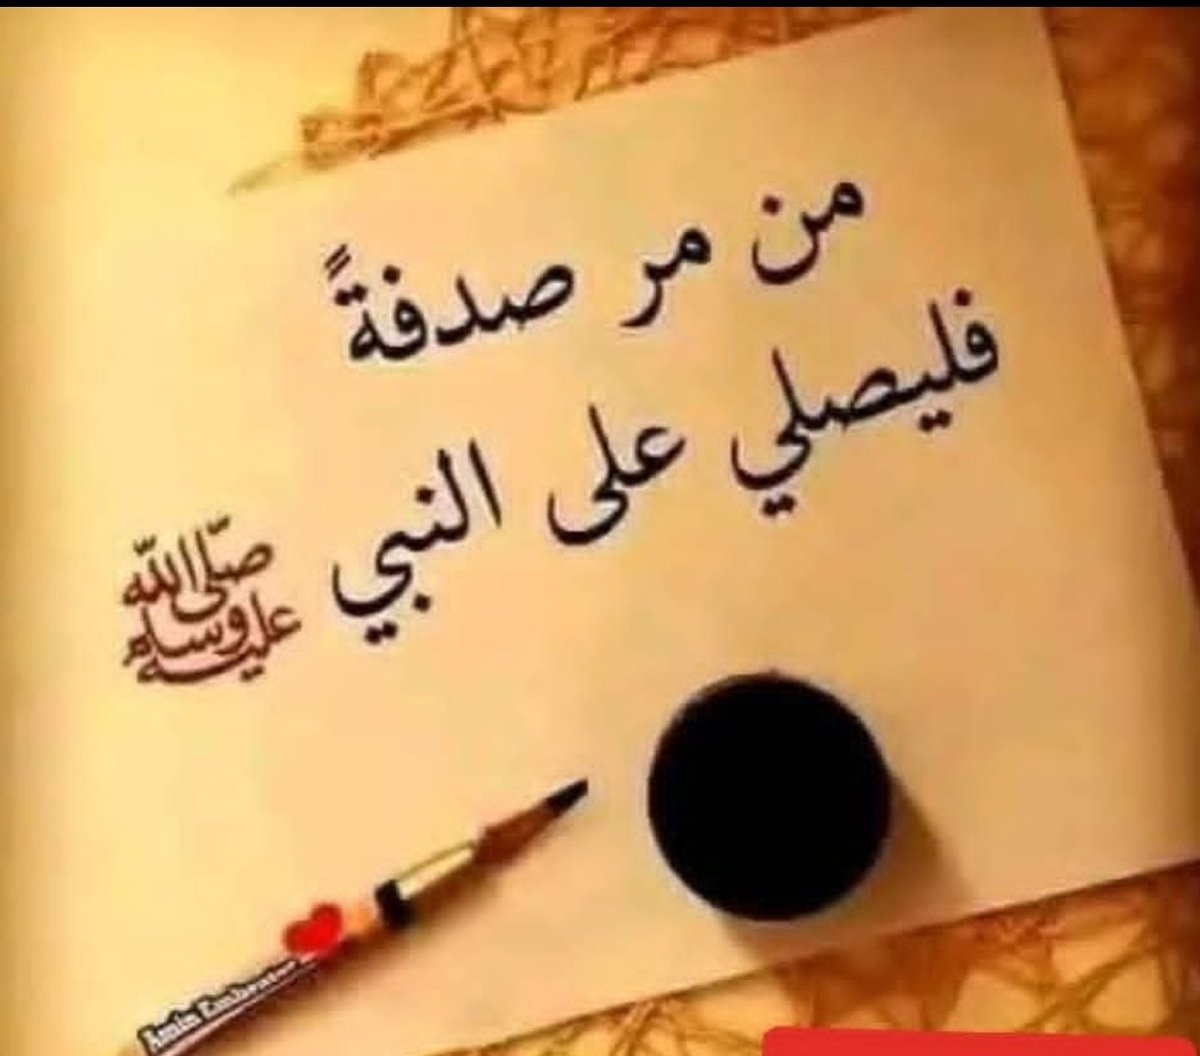 من مر صدفةً
فليصلي على النبي
صلى الله عليه وسلم
Amin Embrator